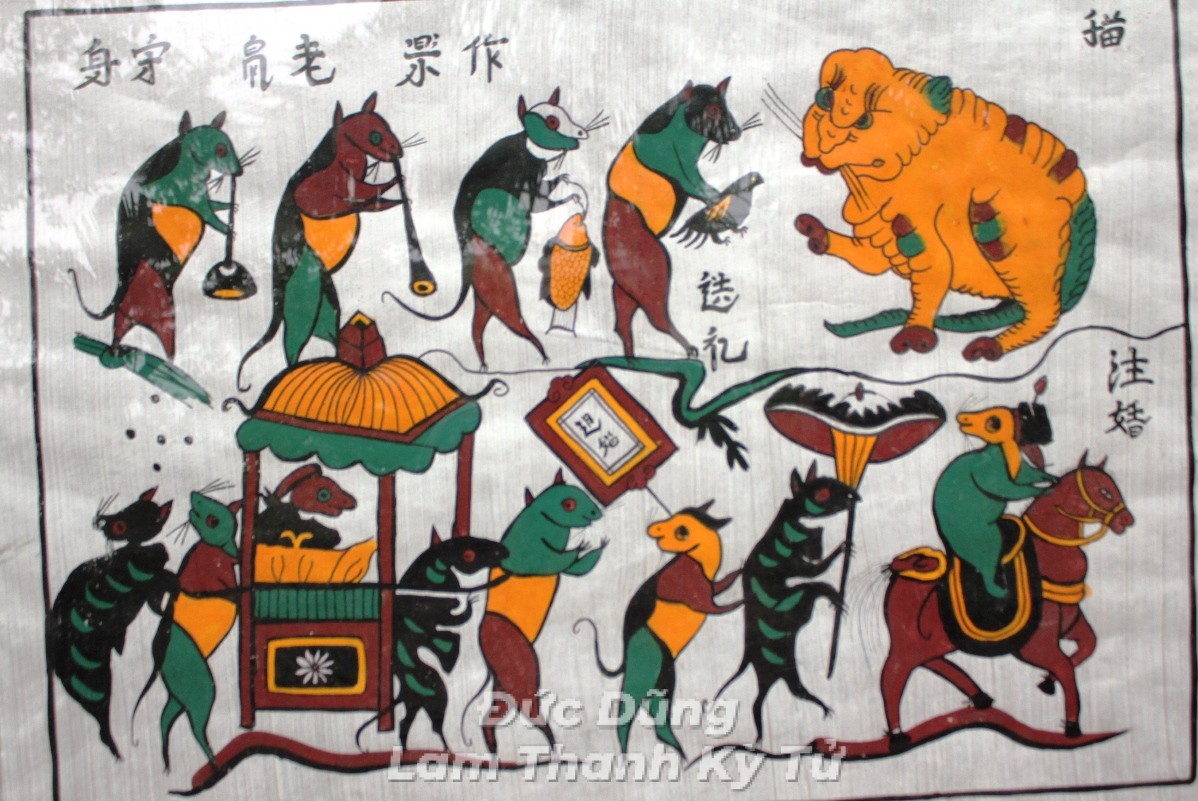 猫
作樂 老鼠 守身
送礼
注婚
Đức Dũng
Lam Thanh Kỳ Tử